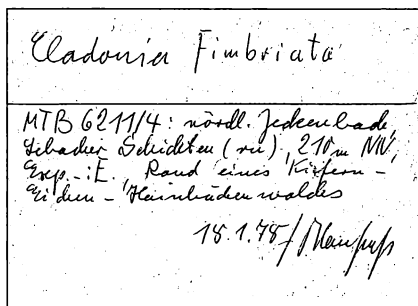 Cladonia Fimbriata
MTB 6211/4: nördl. Jeckenbach,
Lebacher Schichten (ru), 210m NN,
Exp.: E. Rand eines Kiefern-
Eichen-Hainbuchenwaldes
18.1.78/